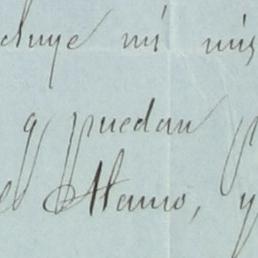 cluye ni mis
q puedan
el Alamo, y